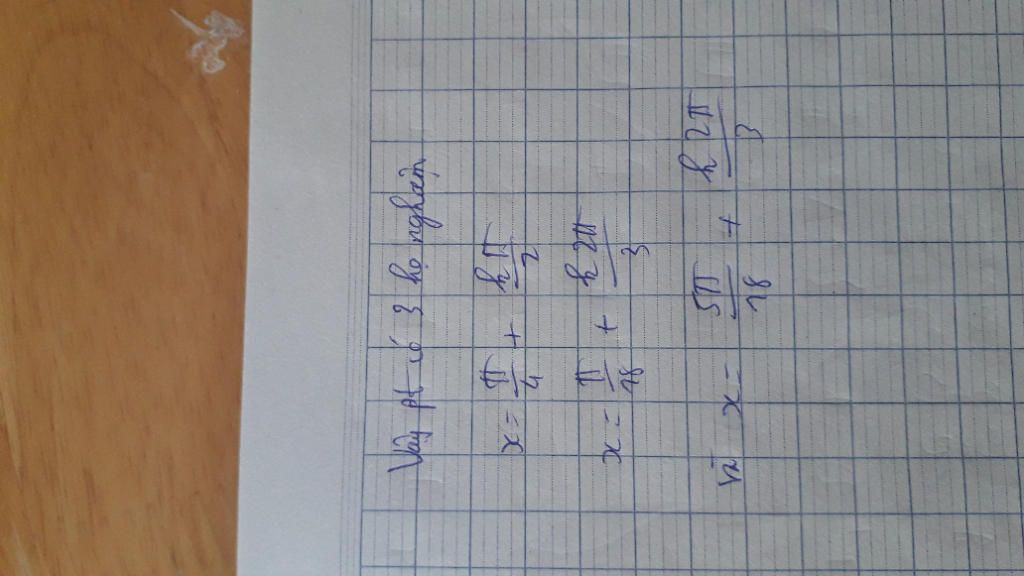 Vậy pt có 3 họ nghiệm
x = π/4 + kπ/2
x = π/18 + k2π/3
và x = 5π/18 + k2π/3